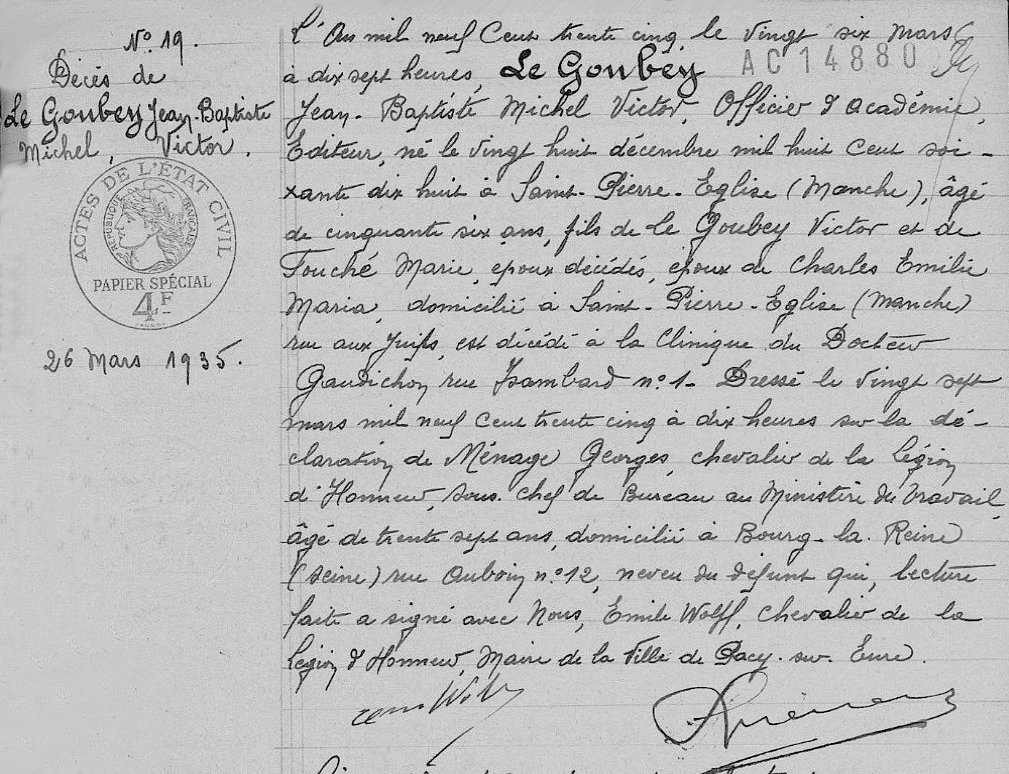 N° 19.
Décès de
Le Goubey Jean-Baptiste
Michel, Victor.
ACTES DE L'ÉTAT CIVIL
RÉPUBLIQUE FRANÇAISE
PAPIER SPÉCIAL
4F
26 Mars 1935.
L'An mil neuf Cent trente cinq, le vingt six Mars
AC 14880
à dix sept heures, Le Goubey
Jean-Baptiste Michel Victor, Officier d'académie,
Editeur, né le vingt huit décembre mil huit cent soi-
xante dix huit à Saint-Pierre-Eglise (Manche), âgé
de cinquante six ans, fils de Le Goubey Victor et de
Touché Marie, époux décédés, époux de Charles Emilie
Maria, domicilié à Saint-Pierre-Eglise (Manche)
rue aux Juifs, est décédé à la Clinique du Docteur
Gaudichon rue Isambard n°1- Dressé le vingt sept
mars mil neuf cent trente cinq à dix heures sur la dé-
claration de Ménage Georges, chevalier de la Légion
d'Honneur, Sous-chef de Bureau au Ministère du Travail,
âgé de trente sept ans, domicilié à Bourg-la-Reine
(Seine) rue Auboin n°12, neveu du défunt qui, lecture
faite a signé avec Nous, Emile Wolff, Chevalier de la
Légion d'Honneur, Maire de la Ville de Pacy-sur-Eure.